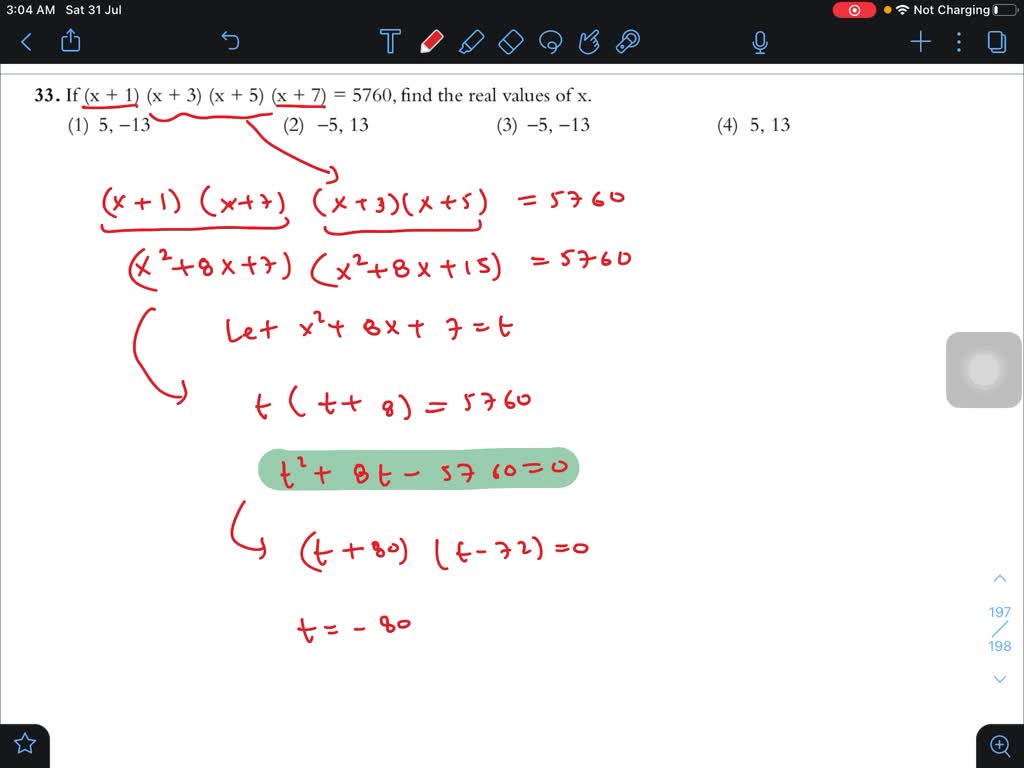 3:04 AM Sat 31 Jul
Not Charging
T
33. If (x + 1) (x + 3) (x + 5) (x + 7) = 5760, find the real values of x.
(1) 5, −13 (2) −5, 13 (3) −5, −13 (4) 5, 13
(x+1) (x+7) (x+3)(x+5) = 5760
(x²+8x+7) (x²+8x+15) = 5760
Let x²+ 8x+ 7 = t
t ( t + 8) = 5760
t²+ 8t − 5760=0
(t +80) (t−72) =0
t = − 80
197
198